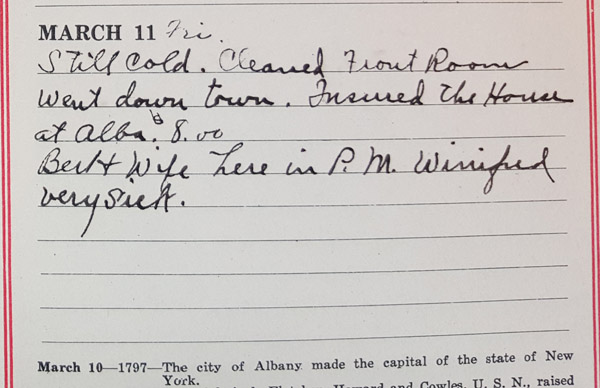 MARCH 11 Fri.
Still Cold. Cleaned Front Room
Went down town. Insured The House
at Alba. $8.00
Bert + Wife here in P. M. Winifred
very sick.
March 10—1797—The city of Albany made the capital of the state of New
York.
Howard and Cowles, U. S. N., raised